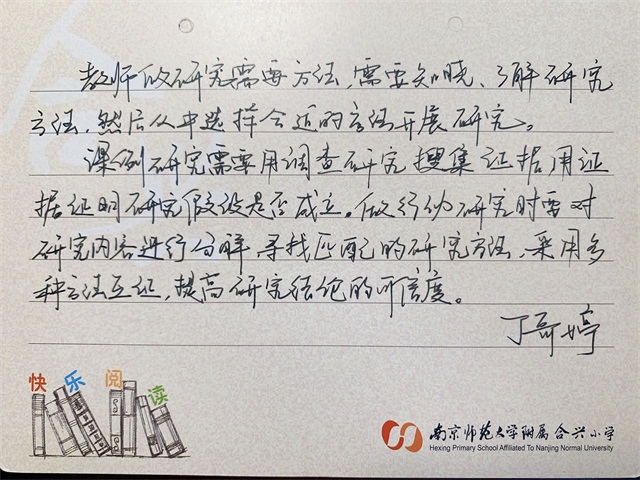 教师做研究需要方法，需要知晓、了解研究
方法，然后从中选择合适的方法开展研究。
课例研究需要用调查研究搜集证据，用证
据证明研究假设是否成立。做行动研究时要对
研究内容进行分解，寻找匹配的研究方法，采用多
种方法互证，提高研究结论的可信度。
丁奇婷
快乐阅读
南京师范大学附属合兴小学
Hexing Primary School Affiliated To Nanjing Normal University